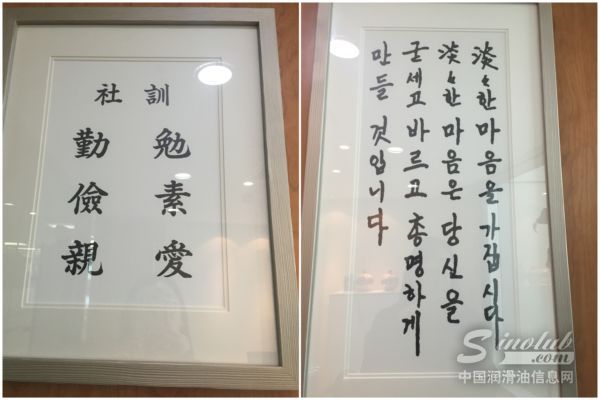 社訓
勤勉
儉素
親愛
淡々한 마음을 가집시다
淡々한 마음은 당신을
굳세고 바르고 총명하게
만들 것입니다
Sinolub
.com
中国润滑油信息网